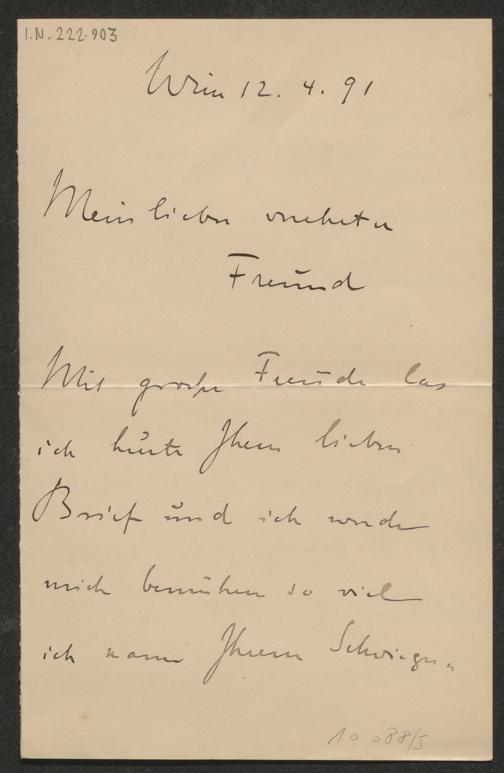 I.N. 222.903
Wien 12. 4. 91
Mein lieber verehrter
Freund
Mit großer Freude las
ich heute Ihren lieben
Brief und ich werde
mich bemühen so viel
ich kann Ihrem Schwieger-
10088/5